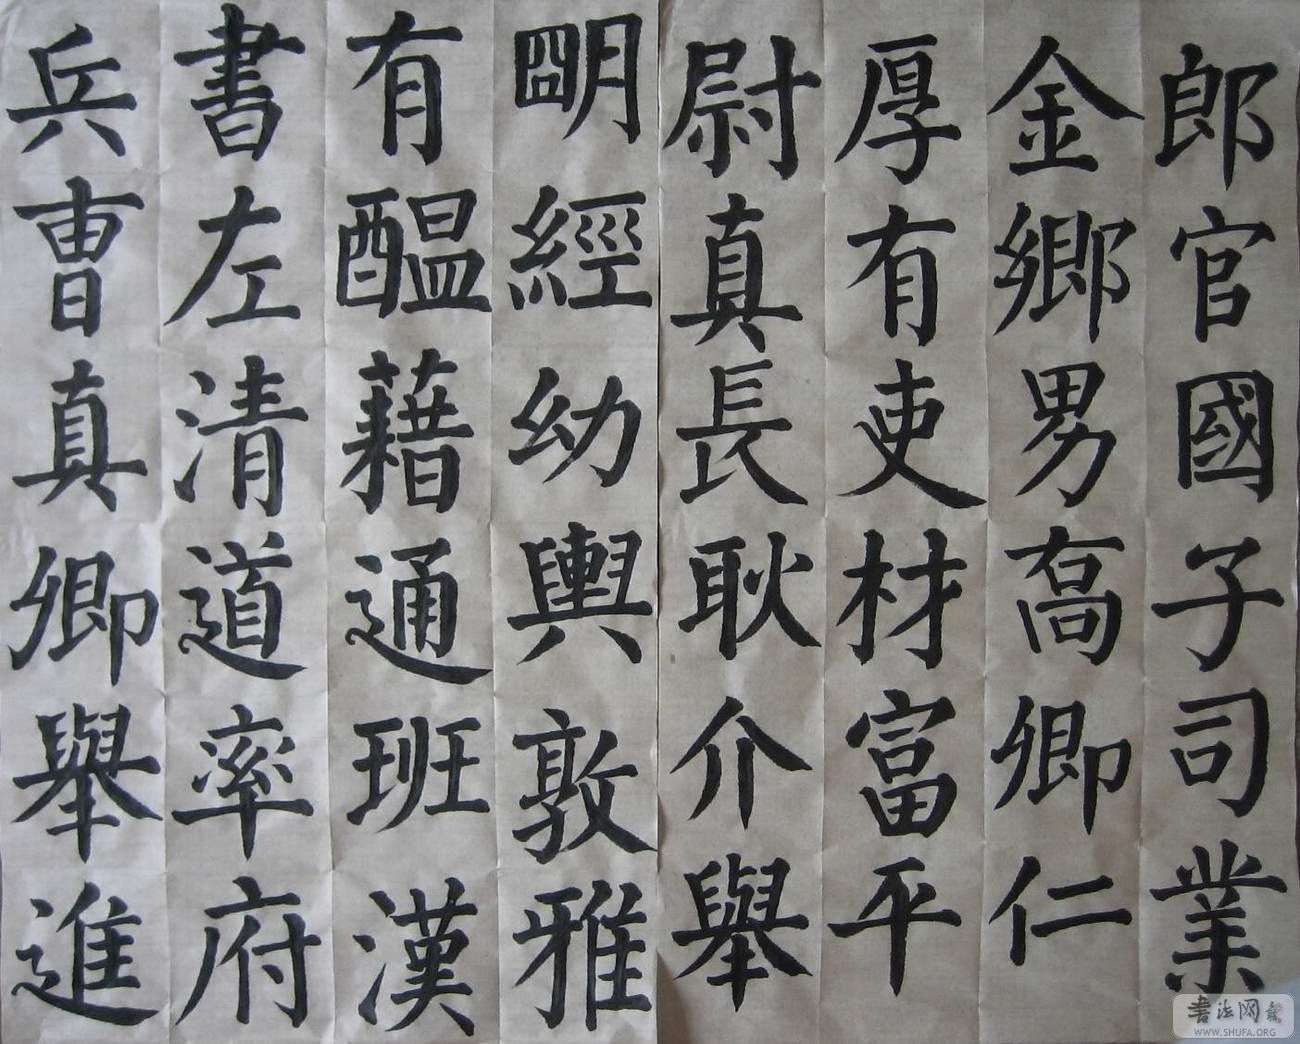 郎官國子司業
金鄉男髙卿仁
厚有吏材富平
尉真長耿介舉
朙經幼輿敦雅
有醞藉通班漢
書左清道率府
兵曹真卿舉進
书法网
WWW.SHUFA.ORG